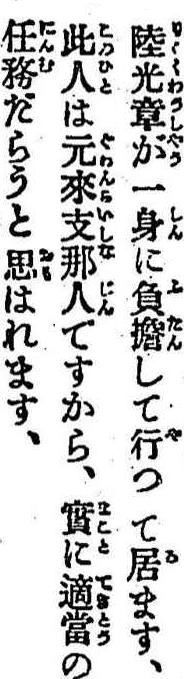 陸光章が一身に負擔して行つて居ます、
此人は元來支那人ですから、實に適當の
任務だらうと思はれます、